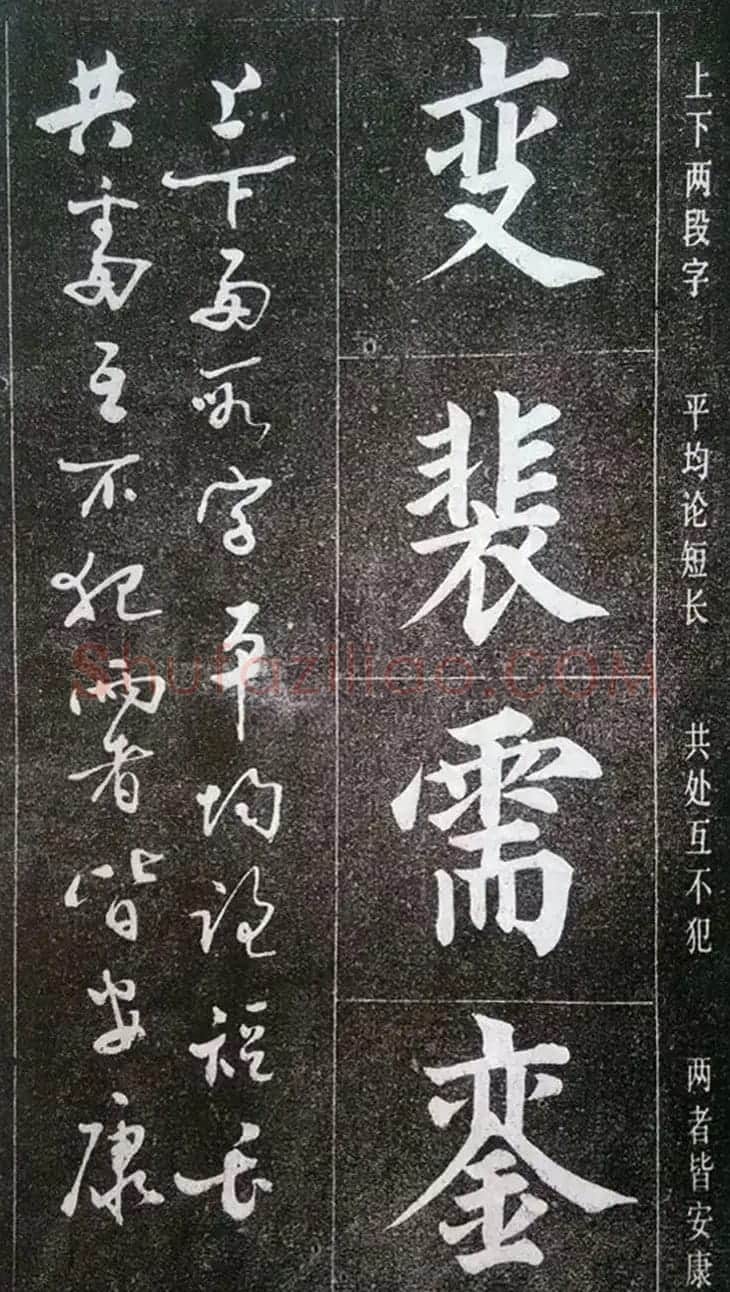 上下两段字 平均论短长 共处互不犯 两者皆安康
变裴需銮
上下两段字平均论短长
共处互不犯两者皆安康
Shufaziliao.COM